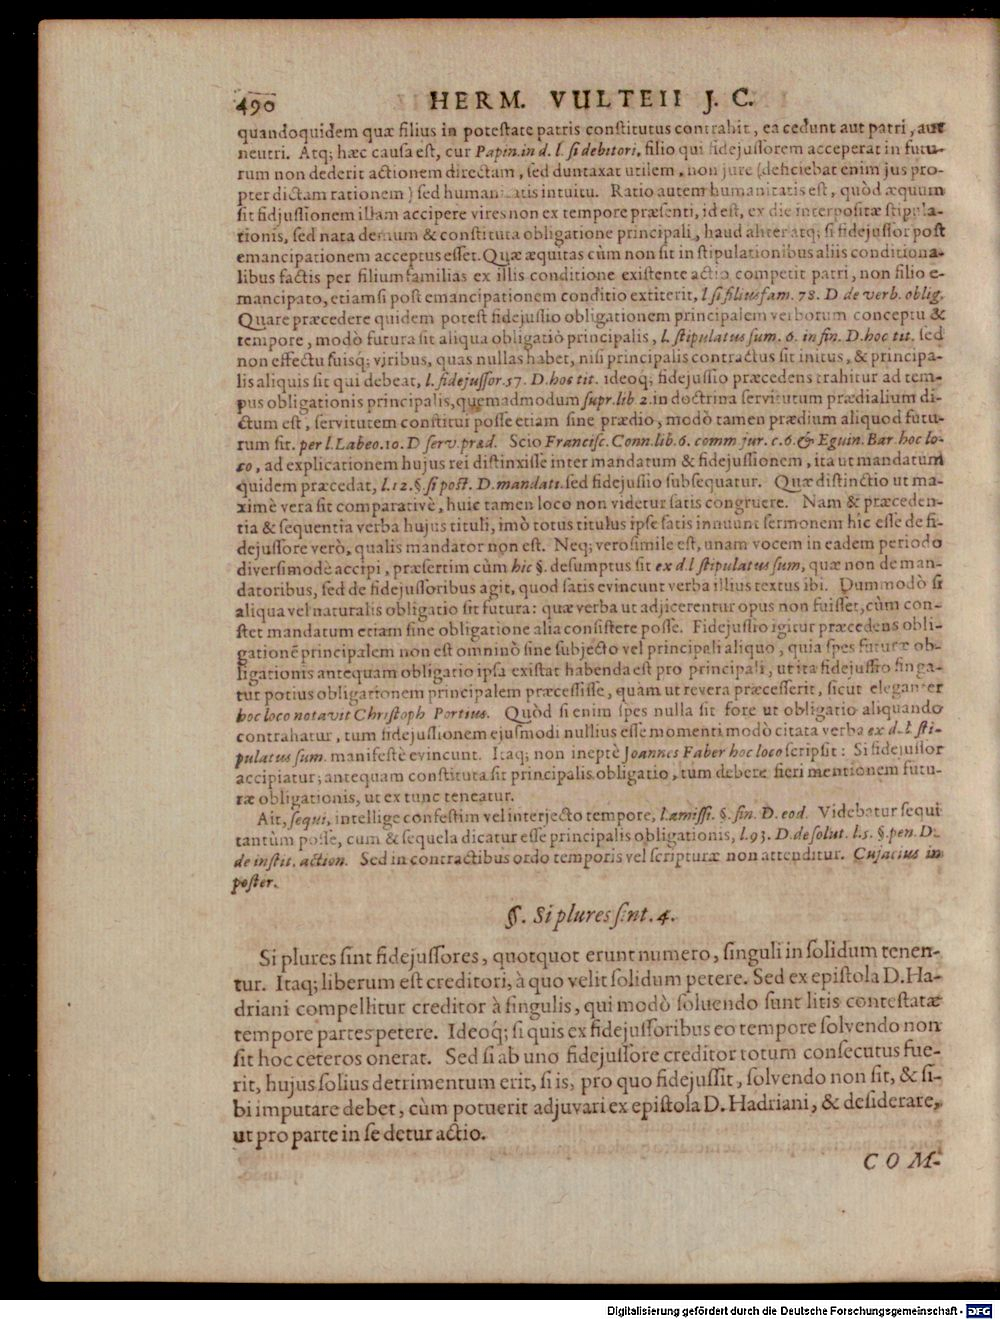 490 HERM. VULTEII J. C.
quandoquidem quæ filius in poteſtate patris conſtitutus contrahit, ea cedunt aut patri, aut
neutri. Atq; hæc cauſa eſt, cur Papin. in d. l. ſi debitori, filio qui fidejuſſorem acceperat in futu-
rum non dederit actionem directam, ſed duntaxat utilem, non jure (deficiebat enim jus pro-
pter dictam rationem) ſed humanitatis intuitu. Ratio autem humanitatis eſt, quòd æquum
ſit fidjuſſionem illam accipere vires non ex tempore præſenti, id eſt, ex die interpoſitæ ſtipula-
tionis, ſed nata demum & conſtituta obligatione principali, haud aliter atq; ſi fidejuſſor poſt
emancipationem acceptus eſſet. Quæ æquitas cùm non ſit in ſtipulationibus aliis conditiona-
libus factis per filiumfamilias ex illis conditione exiſtente actio competit patri, non filio e-
mancipato, etiamſi poſt emancipationem conditio extiterit, l ſi filiusfam. 78. D de verb. oblig.
Quare præcedere quidem poteſt fidejuſſio obligationem principalem verborum conceptu &
tempore, modò futura ſit aliqua obligatiò principalis, l. ſtipulatus ſum. 6. in fin. D. hoc tit. ſed
non effectu ſuisq; viribus, quas nullas habet, niſi principalis contractus ſit initus, & principa-
lis aliquis ſit qui debeat, l. fidejuſſor. 57. D. hoc tit. ideoq; fidejuſſio præcedens trahitur ad tem-
pus obligationis principalis, quemadmodum ſupr. lib 2. in doctrina ſervitutum prædialium di-
ctum eſt, ſervitutem conſtitui poſſe etiam ſine prædio, modò tamen prædium aliquod futu-
rum ſit. per l. Labeo. 10. D ſerv. præd. Scio Franciſc. Conn. lib. 6. comm jur. c. 6. & Eguin. Bar. hoc lo-
co, ad explicationem hujus rei diſtinxiſſe inter mandatum & fidejuſſionem, ita ut mandatum
quidem præcedat, l. 12. §. ſi poſt. D. mandati. ſed fidejuſſio ſubſequatur. Quæ diſtinctio ut ma-
ximè vera ſit comparativè, huic tamen loco non videtur ſatis congruere. Nam & præceden-
tia & ſequentia verba hujus tituli, imò totus titulus ipſe ſatis innuunt ſermonem hic eſſe de fi-
dejuſſore verò, qualis mandator non eſt. Neq; veroſimile eſt, unam vocem in eadem periodo
diverſimodè accipi, præſertim cùm hic §. deſumptus ſit ex d. l ſtipulatus ſum, quæ non de man-
datoribus, ſed de fidejuſſoribus agit, quod ſatis evincunt verba illius textus ibi. Dummodò ſi
aliqua vel naturalis obligatio ſit futura: quæ verba ut adjicerentur opus non fuiſſet, cùm con-
ſtet mandatum etiam ſine obligatione alia conſiſtere poſſe. Fidejuſſio igitur præcedens obli-
gationē principalem non eſt omninò ſine ſubjecto vel principali aliquo, quia ſpes futuræ ob-
ligationis antequam obligatio ipſa exiſtat habenda eſt pro principali, ut ita fidejuſſio finga-
tur potius obligationem principalem præceſſiſſe, quàm ut revera præceſſerit, ſicut eleganter
hoc loco notavit Chriſtoph Portius. Quòd ſi enim ſpes nulla ſit fore ut obligatio aliquando
contrahatur, tum fidejuſſionem ejuſmodi nullius eſſe momenti modò citata verba ex d. l ſti-
pulatus ſum. manifeſtè evincunt. Itaq; non ineptè Joannes Faber hoc loco ſcripſit: Si fidejuſſor
accipiatur; antequam conſtituta ſit principalis obligatio, tum debere fieri mentionem futu-
ræ obligationis, ut ex tunc teneatur.
Ait, ſequi, intellige confeſtim vel interjecto tempore, l. amiſſi. §. fin. D. eod. Videbatur ſequi
tantùm poſſe, cum & ſequela dicatur eſſe principalis obligationis, l. 93. D. de ſolut. l. 5. §. pen. D.
de inſtit. action. Sed in contractibus ordo temporis vel ſcripturæ non attenditur. Cujacius in
poſter.
§. Si plures ſint. 4.
Si plures ſint fidejuſſores, quotquot erunt numero, ſinguli in ſolidum tenen-
tur. Itaq; liberum eſt creditori, à quo velit ſolidum petere. Sed ex epiſtola D. Ha-
driani compellitur creditor à ſingulis, qui modò ſoluendo ſunt litis conteſtatæ
tempore partes petere. Ideoq́; ſi quis ex fidejuſſoribus eo tempore ſolvendo non
ſit hoc ceteros onerat. Sed ſi ab uno fidejuſſore creditor totum conſecutus fue-
rit, hujus ſolius detrimentum erit, ſi is, pro quo fidejuſſit, ſolvendo non ſit, & ſi-
bi imputare debet, cùm potuerit adjuvari ex epiſtola D. Hadriani, & deſiderare,
ut pro parte in ſe detur actio.
COM-
Digitalisierung gefördert durch die Deutsche Forschungsgemeinschaft - DFG